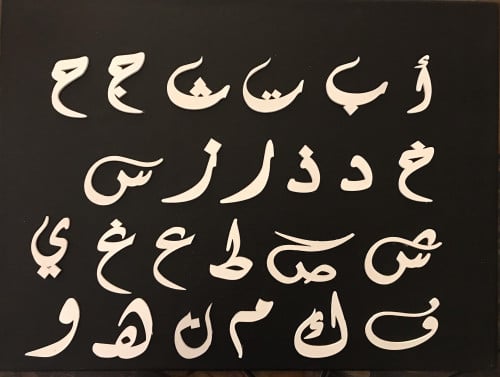 أ ب ت ث ج ح
خ د ذ ر ز س
ش ص ط ع غ ي
ف ك م ن ه و